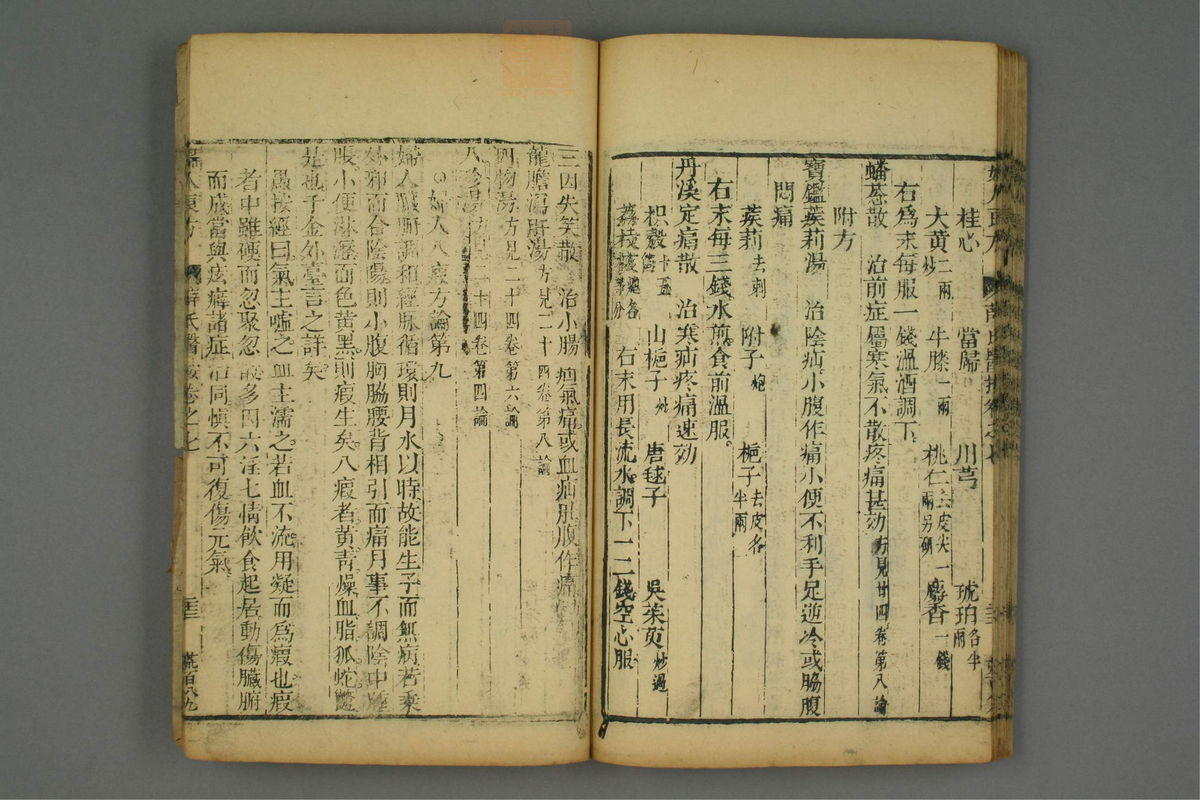 桂心 當歸 川芎 琥珀各半兩
大黃二兩炒 牛膝一兩 桃仁去皮尖一兩另研 麝香一錢
右爲末每服一錢溫酒調下
蟠葱散 治前症屬寒氣不散疼痛甚効方見廿四卷第八論
附方
寶鑑蒺莉湯 治陰疝小腹作痛小便不利手足逆冷或脇腹
悶痛
蒺莉去刺 附子炮 梔子去皮各半兩
右末每三錢水煎食前溫服
丹溪定痛散 治寒疝疼痛速効
枳殼十五箇 山梔子炒 唐毬子 吳茱萸炒過
荔枝核炮各等分 右末用長流水調下一二錢空心服
三因失笑散 治小腸疝氣痛或血疝肚腹作痛
龍膽瀉肝湯方見二十四卷第八論
四物湯方見二十四卷第六論
八珍湯方見二十四卷第四論
婦人八瘕方論第九
婦人臟腑調和經脉循環則月水以時故能生子而無病若乘
外邪而合陰陽則小腹胸脇腰背相引而痛月事不調陰中腫
脹小便淋瀝面色黃黑則瘕生矣八瘕者黃靑燥血脂狐蛇鼈
是也千金外臺言之詳矣
愚按經曰氣主噓之血主濡之若血不流用凝而爲瘕也瘕
者中雖硬而忽聚忽散多因六淫七情飲食起居動傷臟腑
而成當與痃癖諸症治同慎不可復傷元氣
婦人良方 薛氏醫按卷之七